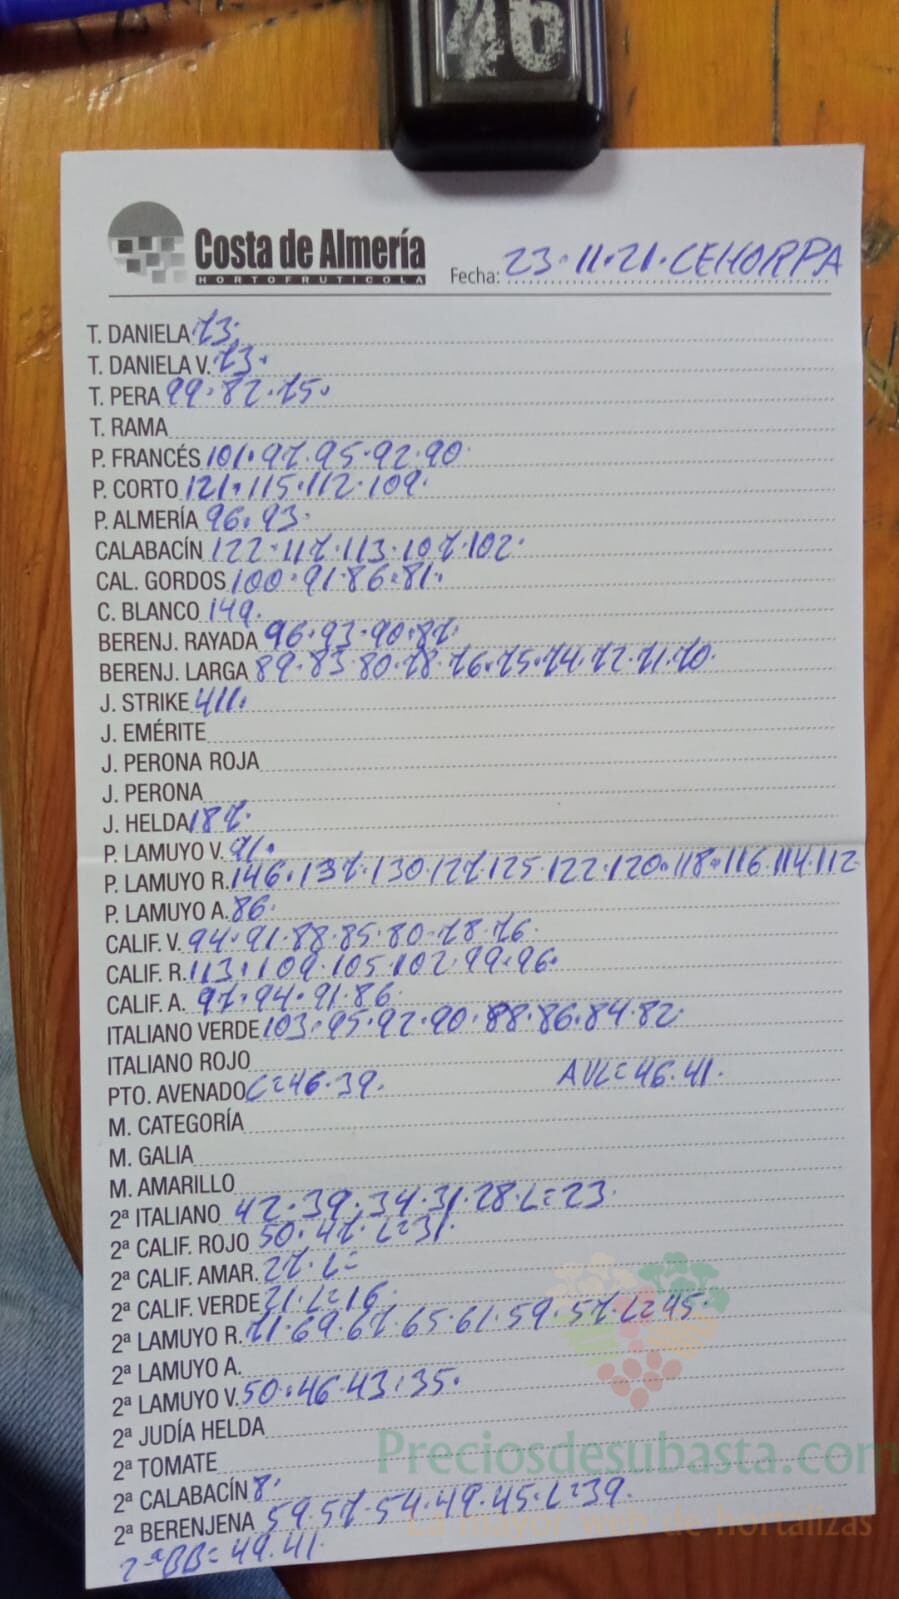 46
Costa de Almería
HORTOFRUTICOLA
Fecha: 23.11.21.CEHORPA
T. DANIELA 73.
T. DANIELA V. 73.
T. PERA 99.82.75.
T. RAMA
P. FRANCÉS 101.97.95.92.90.
P. CORTO 121.115.112.109.
P. ALMERÍA 96.93.
CALABACÍN 122.117.113.107.102.
CAL. GORDOS 100.91.86.81.
C. BLANCO 149.
BERENJ. RAYADA 96.93.90.87.
BERENJ. LARGA 89.83.80.78.76.75.74.72.71.70.
J. STRIKE 411.
J. EMÉRITE
J. PERONA ROJA
J. PERONA
J. HELDA 187.
P. LAMUYO V. 91.
P. LAMUYO R. 146.137.130.127.125.122.120.118.116.114.112
P. LAMUYO A. 86.
CALIF. V. 94.91.88.85.80.78.76.
CALIF. R. 113.109.105.102.99.96.
CALIF. A. 97.94.91.86.
ITALIANO VERDE 103.95.92.90.88.86.84.82.
ITALIANO ROJO
PTO. AVENADO C=46.39. AVL=46.41.
M. CATEGORÍA
M. GALIA
M. AMARILLO
2ª ITALIANO 42.39.34.31.28.L=23.
2ª CALIF. ROJO 50.47.L=31.
2ª CALIF. AMAR. 27.L=
2ª CALIF. VERDE 21.L=16.
2ª LAMUYO R. 71.69.67.65.61.59.57.L=45.
2ª LAMUYO A.
2ª LAMUYO V. 50.46.43.35.
2ª JUDÍA HELDA
2ª TOMATE
2ª CALABACÍN 8.
2ª BERENJENA 59.57.54.49.45.L=39.
2ªBB=49.41.
Preciosdesubasta.com
La mayor web de hortalizas